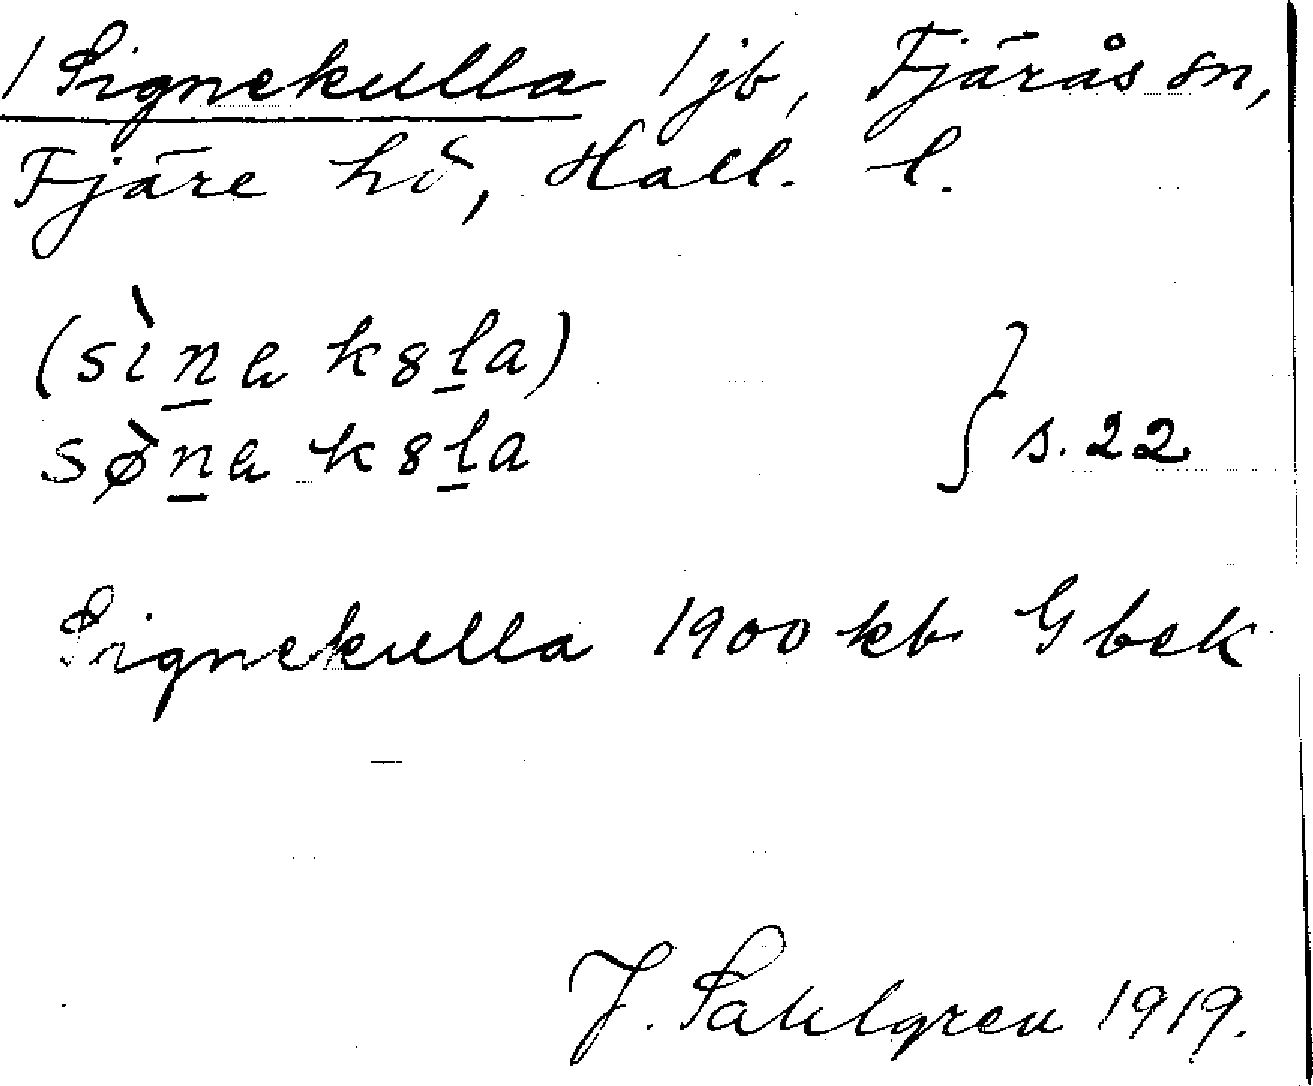 1 Signekulla 1 jb, Fjärås sn,
Fjäre hd, Hall. l.
(sìna k8la)
sø̀na k8la } s. 22
Signekulla 1900 kb G bek
J. Sahlgren 1919.